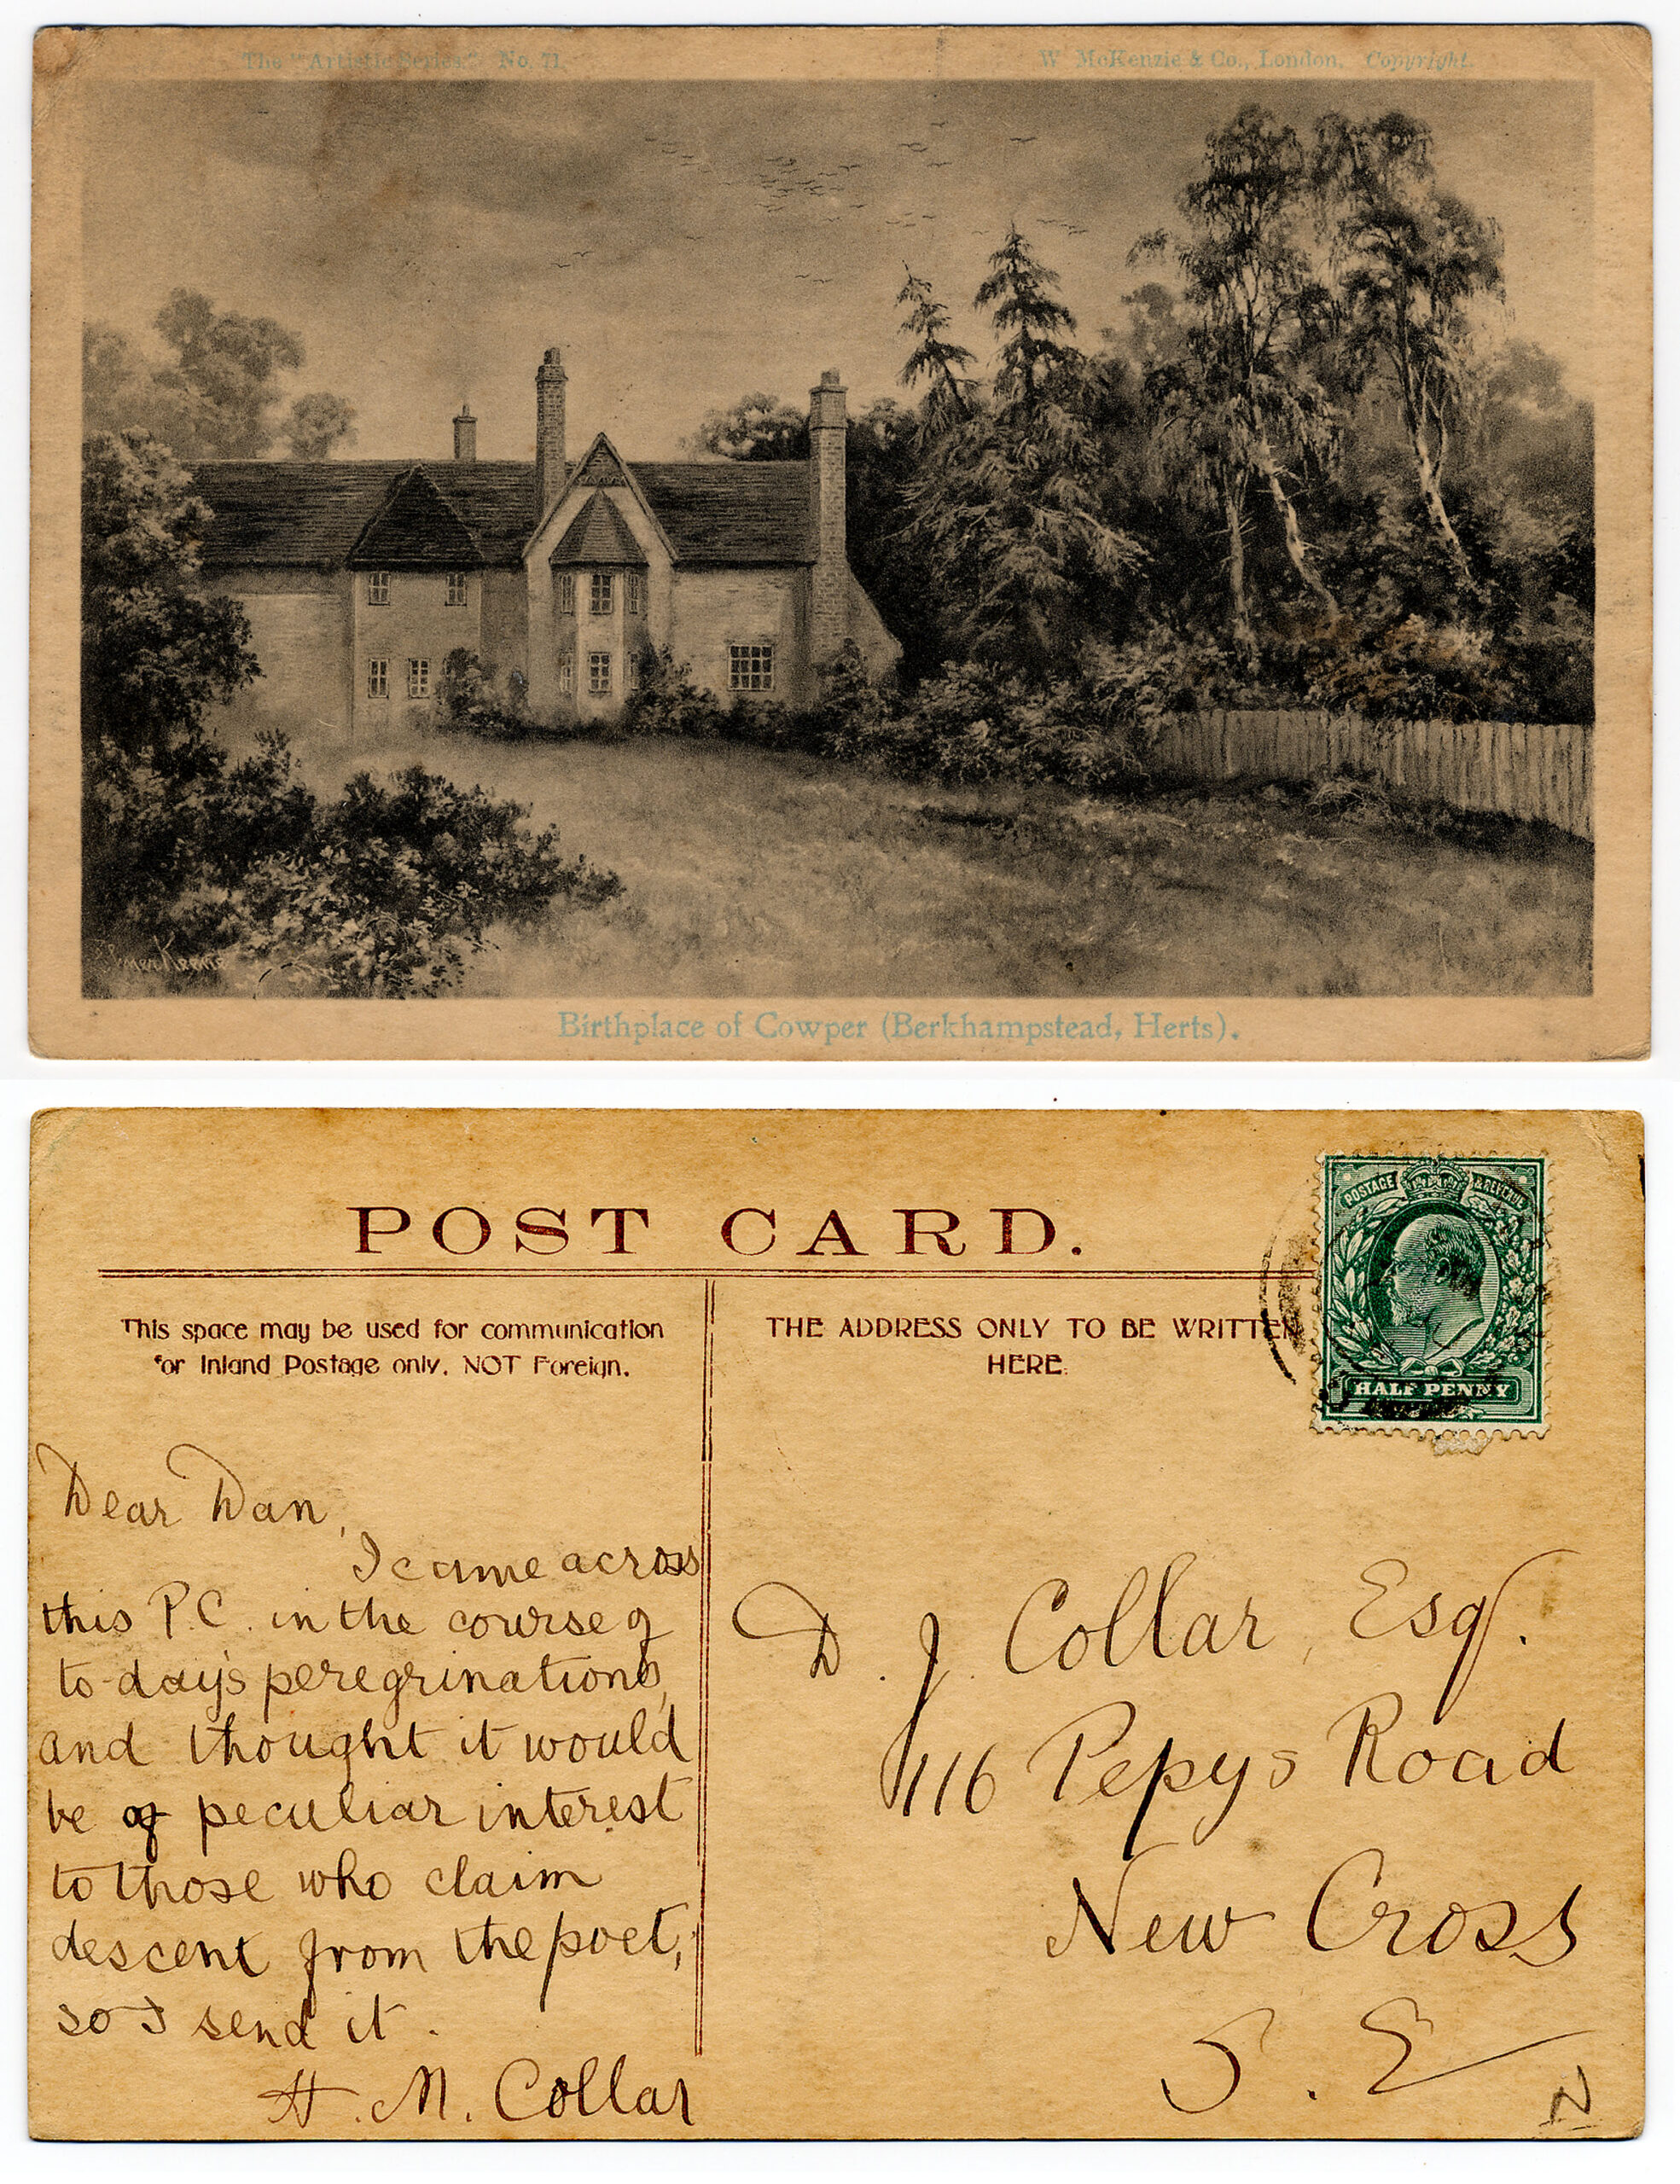 The "Artistic Series." No. 71.
W. McKenzie & Co., London. Copyright.
Elmer Keene
Birthplace of Cowper (Berkhampstead, Herts).
POST CARD.
This space may be used for communication
for Inland Postage only. NOT Foreign.
THE ADDRESS ONLY TO BE WRITTEN
HERE.
POSTAGE & REVENUE
HALF PENNY
Dear Dan,
I came across
this P.C. in the course of
to-day's peregrinations,
and thought it would
be of peculiar interest
to those who claim
descent from the poet,
so I send it.
H. M. Collar
D. J. Collar, Esq.
116 Pepys Road
New Cross
S. E
N